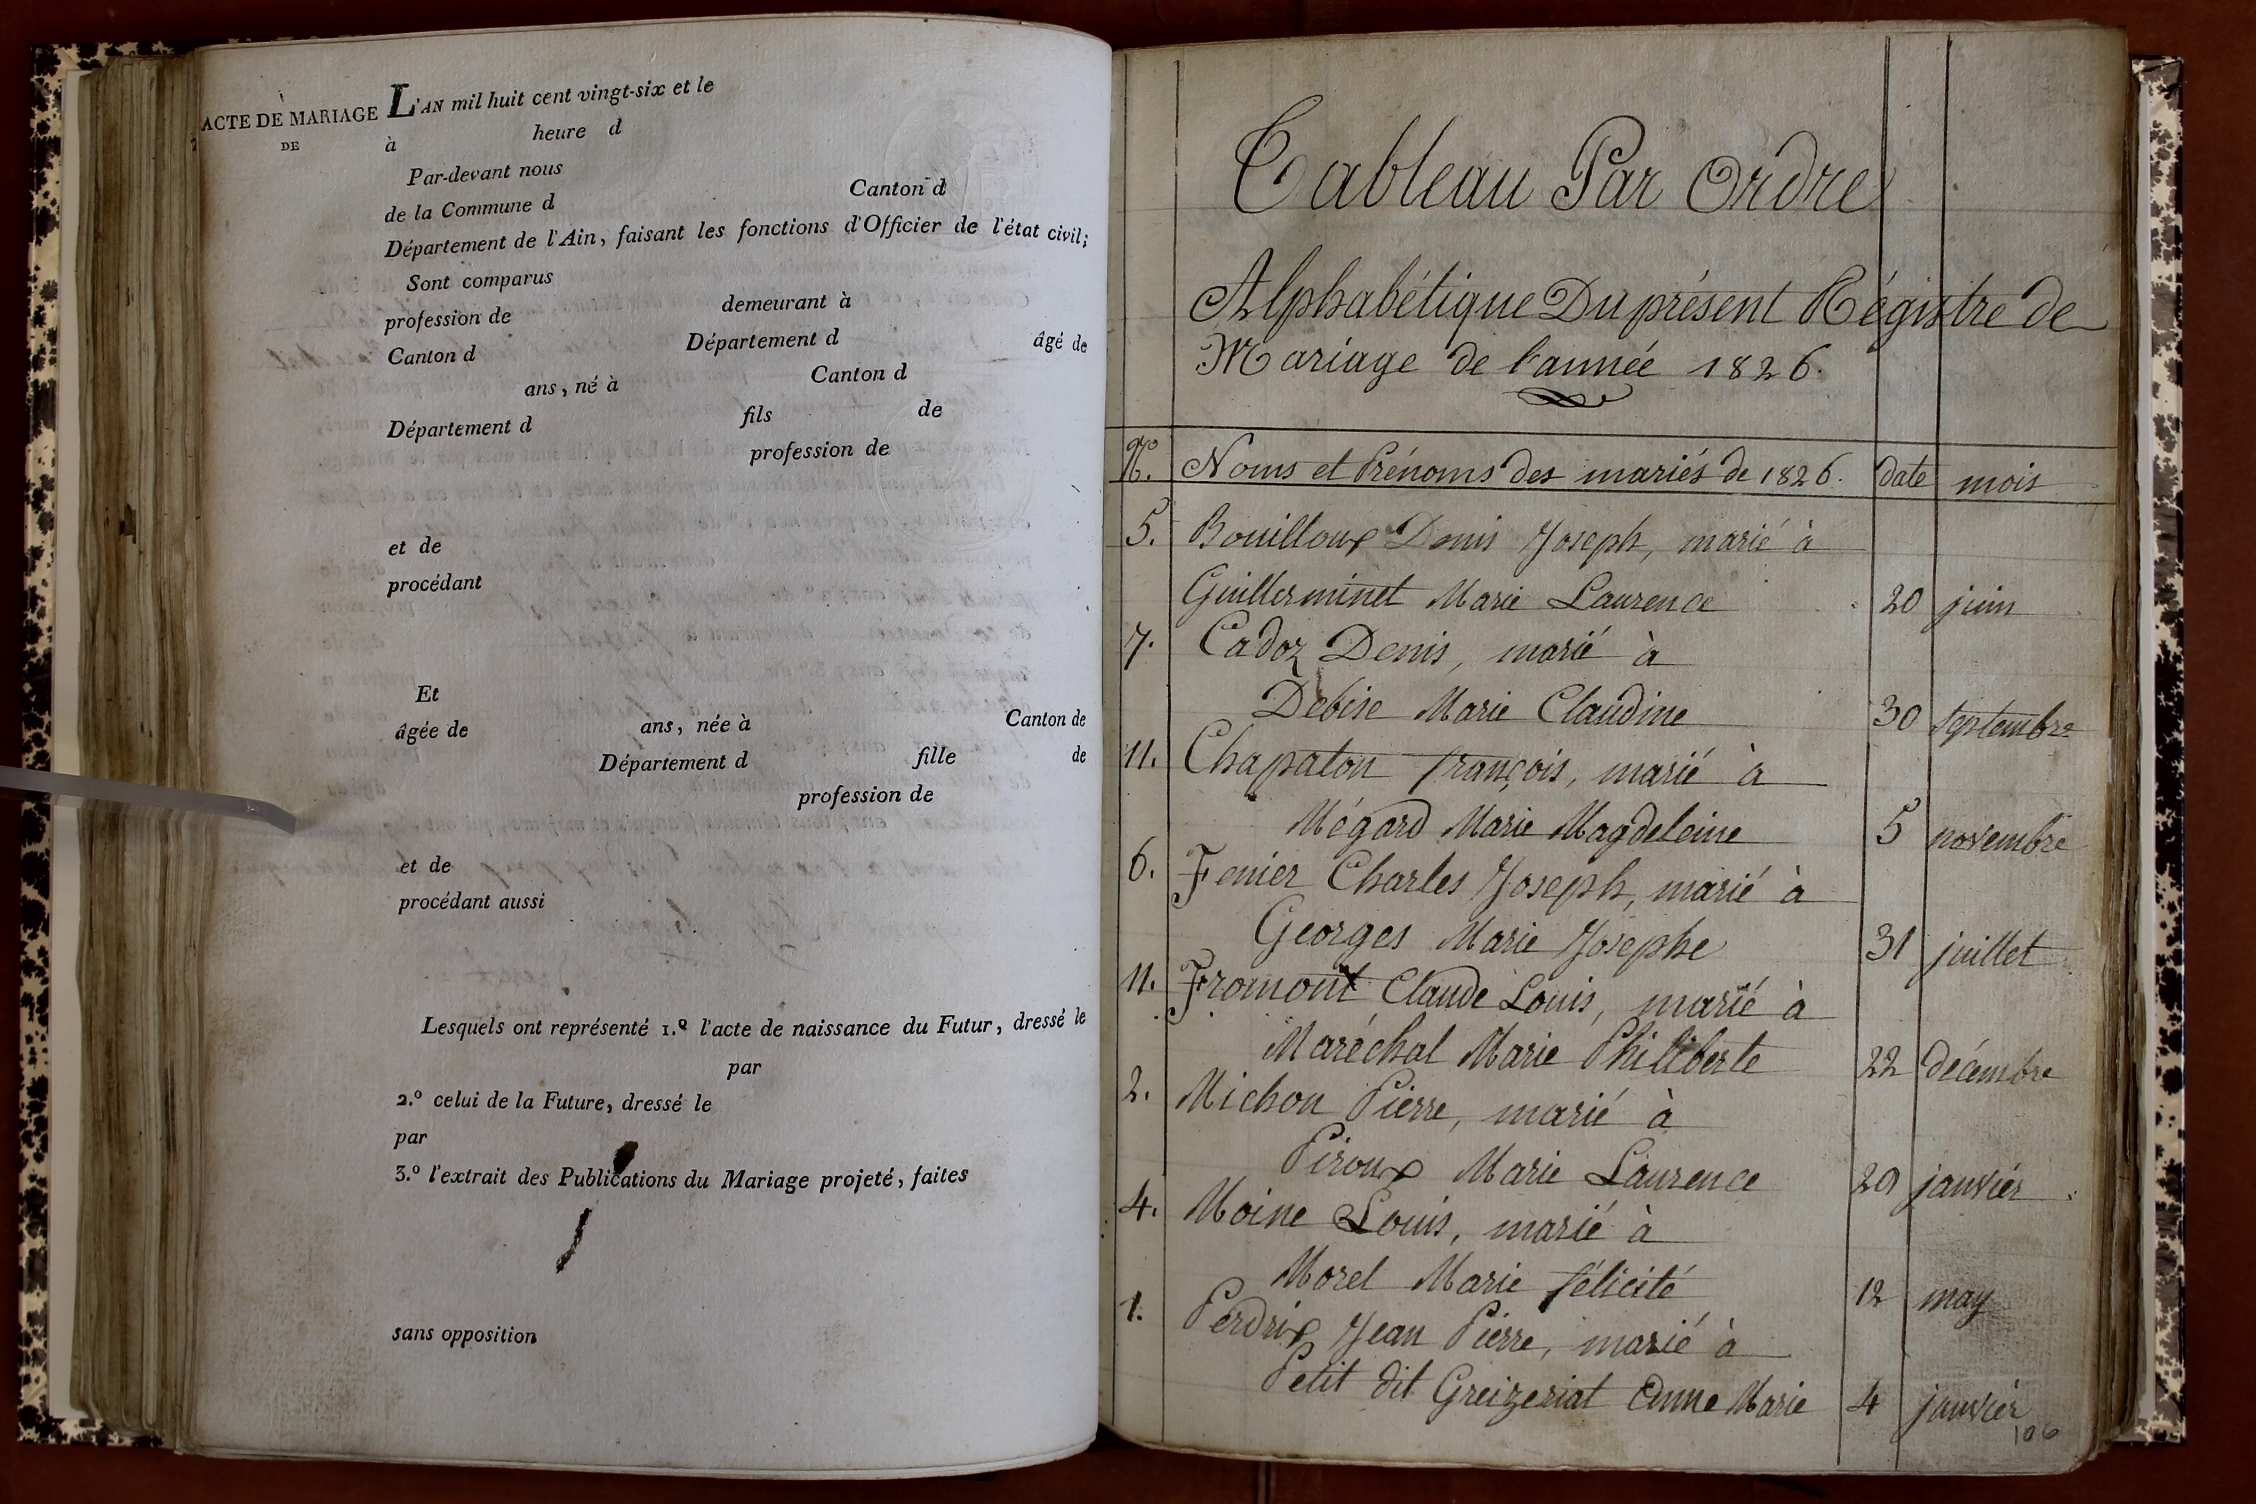 ACTE DE MARIAGE
DE
L'AN mil huit cent vingt-six et le
à heure d
Par-devant nous
de la Commune d Canton d
Département de l'Ain, faisant les fonctions d'Officier de l'état civil;
Sont comparus
profession de demeurant à
Canton d Département d âgé de
ans, né à Canton d
Département d fils de
profession de
et de
procédant
Et
âgée de ans, née à Canton de
Département d fille de
profession de
et de
procédant aussi
Lesquels ont représenté 1.º l'acte de naissance du Futur, dressé le
par
2.º celui de la Future, dressé le
par
3.º l'extrait des Publications du Mariage projeté, faites
sans opposition
Tableau Par Ordre
Alphabétique Du présent Régistre de
Mariage de l'année 1826.
Nº. Noms et Prénoms des mariés de 1826. date mois
5. Bouilloux Denis Joseph, marié à
Guillerminet Marie Laurence 20 juin
7. Cadoz Denis, marié à
Debise Marie Claudine 30 septembre
11. Chapaton françois, marié à
Mégard Marie Magdeleine 5 novembre
6. Fenier Charles Joseph, marié à
Georges Marie Josephe 31 juillet
11. Fromont Claude Louis, marié à
Maréchal Marie Philiberte 22 décembre
2. Michon Pierre, marié à
Piroux Marie Laurence 29 janvier
4. Moine Louis, marié à
Morel Marie félicité 12 may
1. Perdrix Jean Pierre, marié à
Petit dit Greizeriat Anne Marie 4 janvier
106